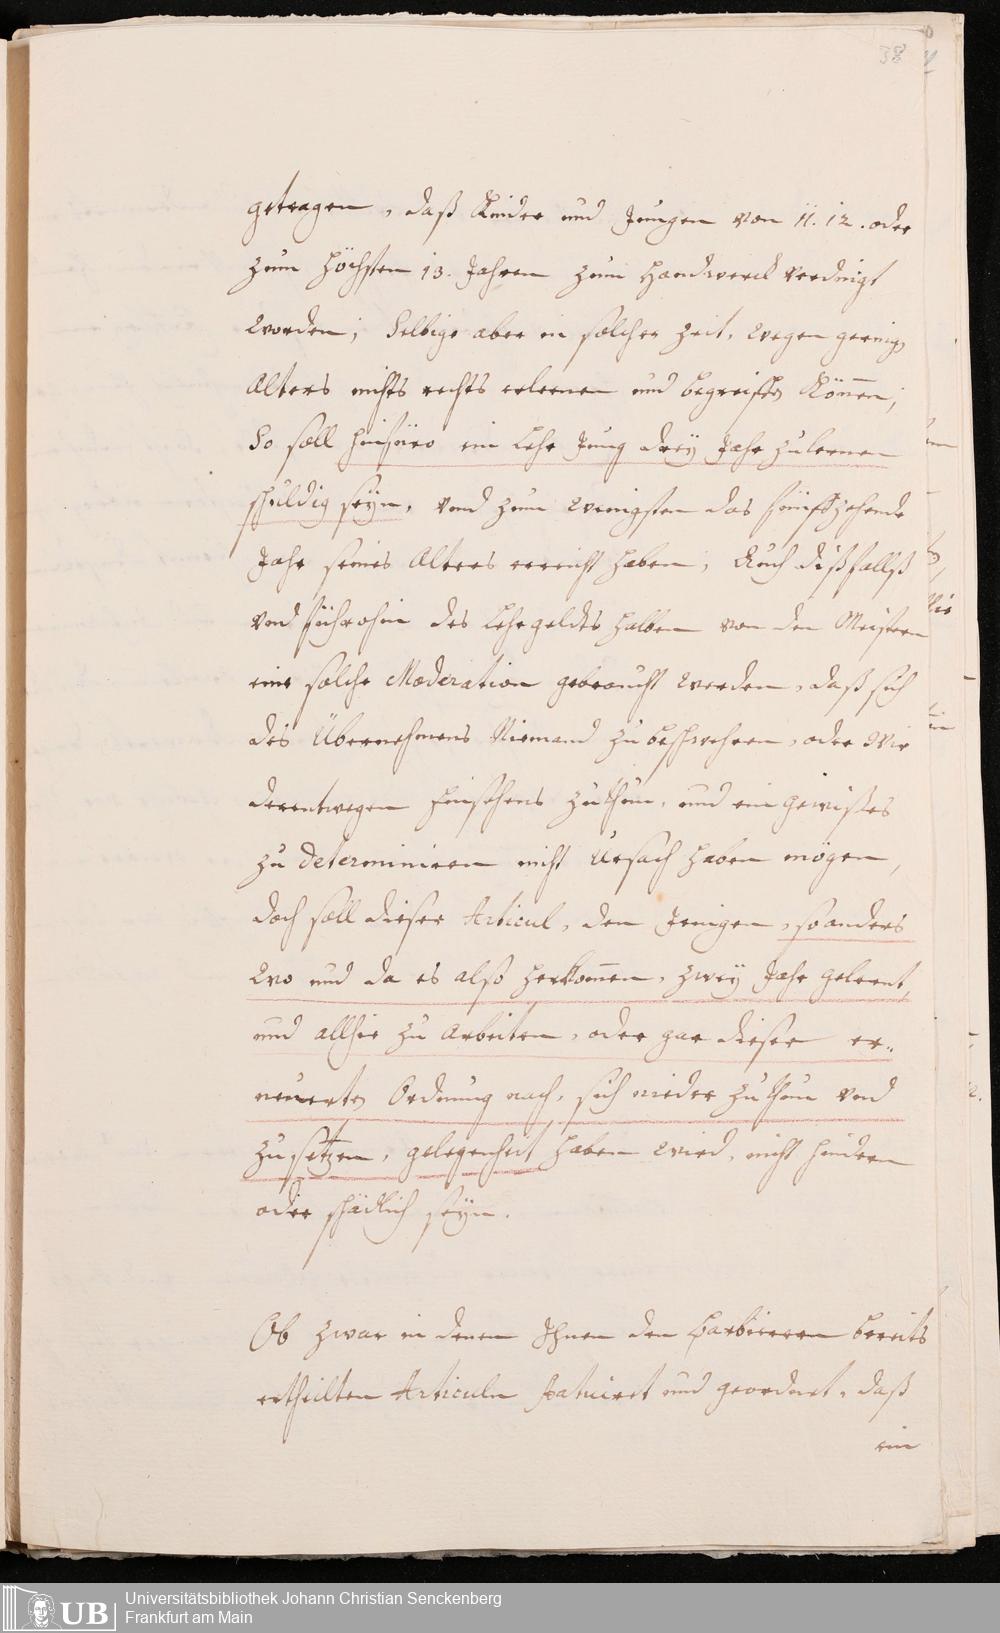 38
getragen, daß Kinder und Jungen von 11. 12. oder
zum höchsten 13. Jahren zum Handwerck verdingt
worden; Selbige aber in solcher Zeit, wegen gering
Alters nichts rechts erlernen und begreiffen können;
So soll hinfüro ein Lehr Jung drey Jahr zu lernen
schuldig seyn, vnd zum wenigsten das fünffzehende
Jahr seines Alters erreicht haben; Auch dißfallß
vnd führohin des Lehrgeldes halben von den Meistern
eine solche Moderation gebraucht werden, daß sich
des Übernehmens Niemand zu beschwehren, oder Wir
derentwegen Einsehens zu thun, und ein gewißes
zu determiniren nicht Ursach haben mögen,
doch soll dieser Articul, den Jenigen, so anders
wo und da es also herkom̅en, zwey Jahr gelernt,
und allhie zu arbeiten, oder gar dieser er„
neuerten Ordnung nach, sich nieder zu thun vnd
zu setzen, gelegenheit haben wird, nicht hindern
oder schädlich seyn.
Ob zwar in denen Ihnen den Barbierern bereits
ertheilten Articuln statuiret und geordnet, daß
ein
UB
Universitätsbibliothek Johann Christian Senckenberg
Frankfurt am Main